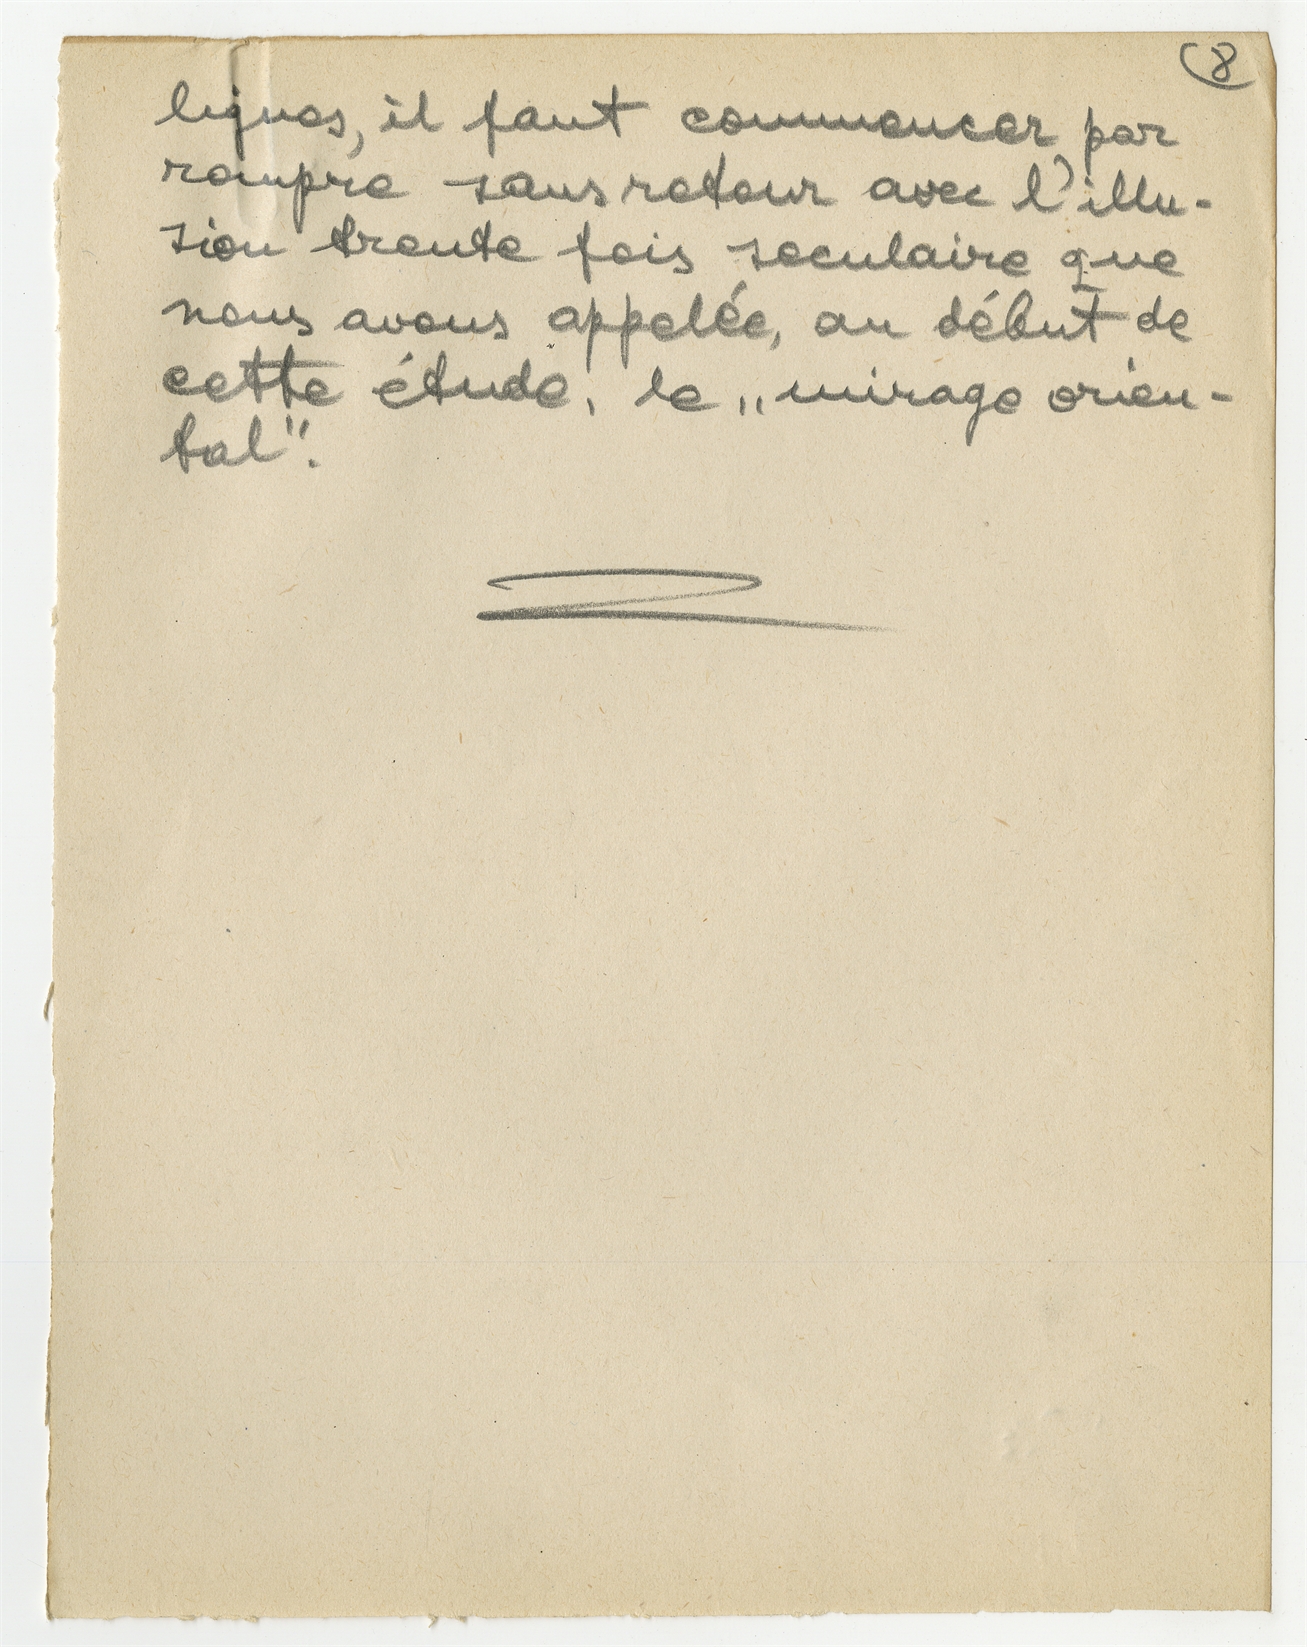 8
lignes, il faut commencer par
rompre sans retour avec l'illu-
sion trente fois seculaire que
nous avons appelée, au début de
cette étude, le „mirage orien-
tal".